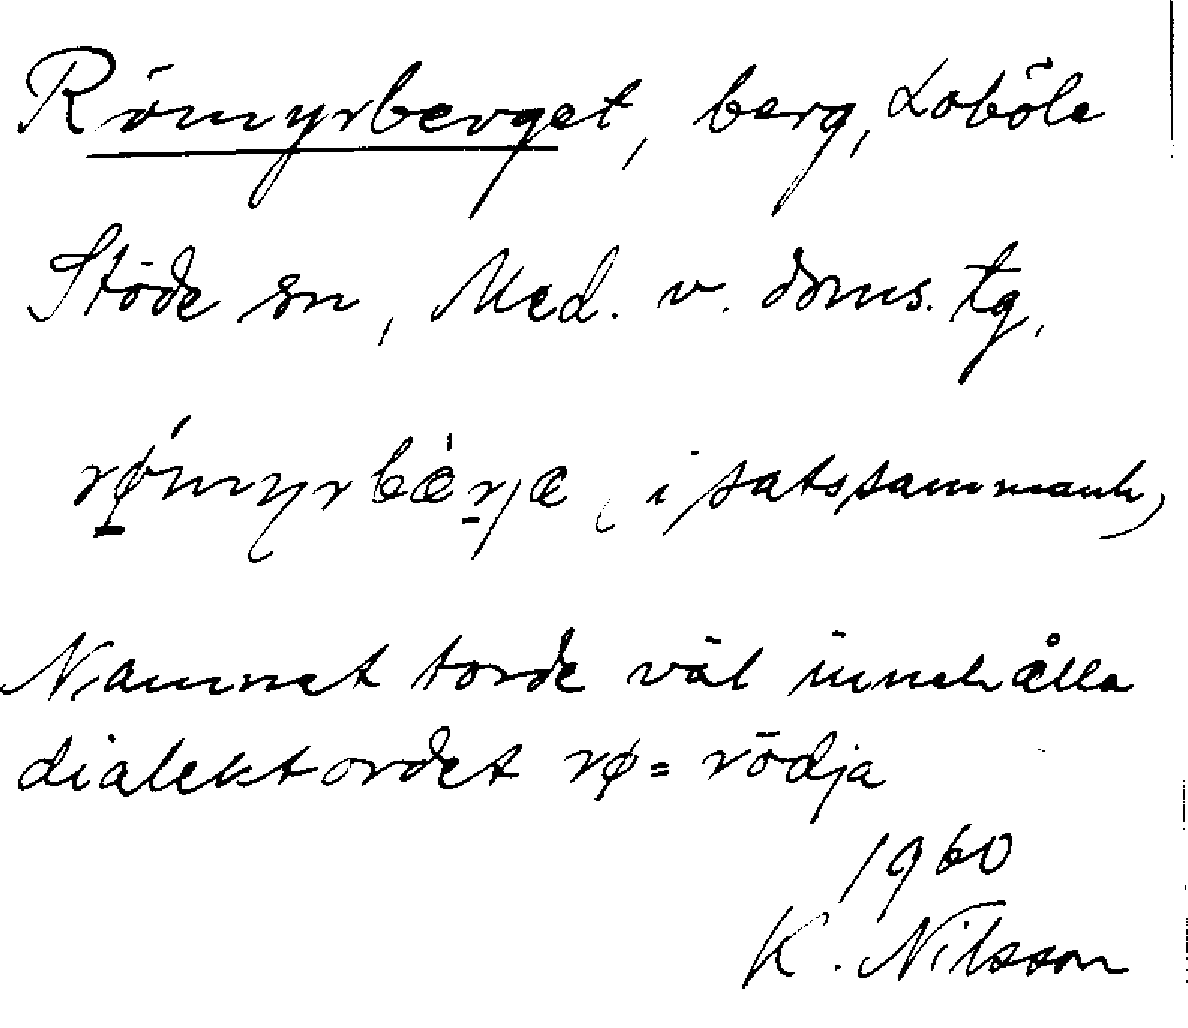 Römyrberget, berg, Loböle
Stöde sn, Med. v. doms. tg,
rǿ̱myrbæ̀r̠jæ (i satssammanh)
Namnet torde väl innehålla
dialektordet rø = rödja
1960
K. Nilsson